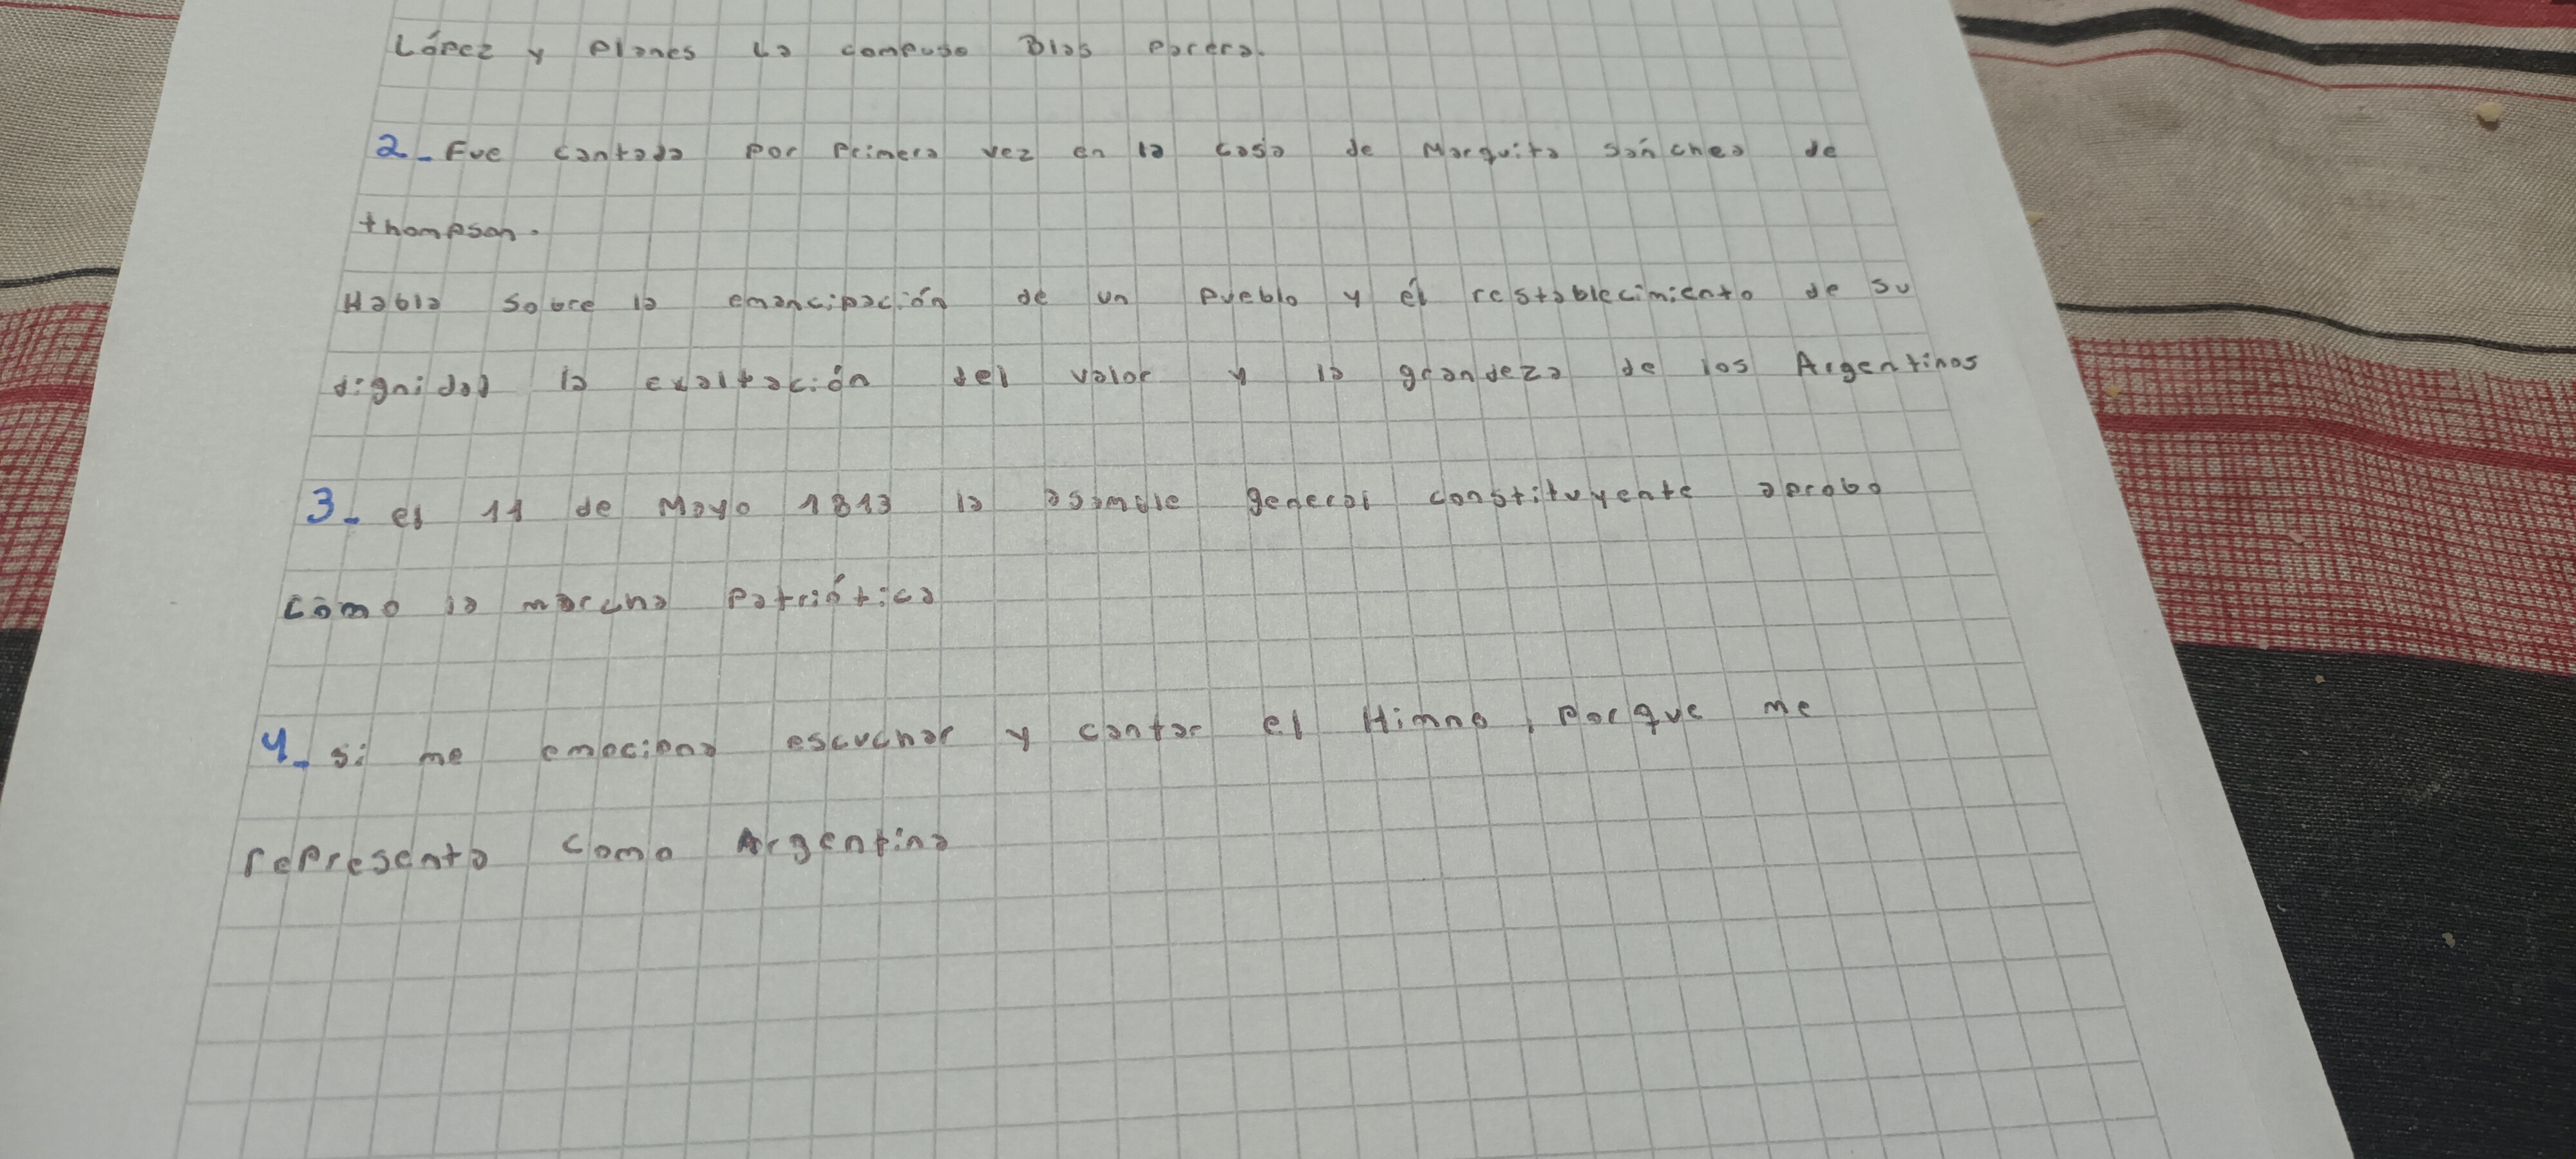 López y Planes La compuso Blas Parera.
2_ Fue cantada por primera vez en la casa de Marquita Sánchea de
thompson.
Habla sobre la emancipación de un Pueblo y él restablecimiento de su
dignidad la exaltación del valor y la grandeza de los Argentinos
3_ el 11 de Mayo 1813 la asamble general constituyente aprobo
como la marcha Patriótica
4_ si me emociona escuchar y cantar el Himno, Porque me
representa como Argentina